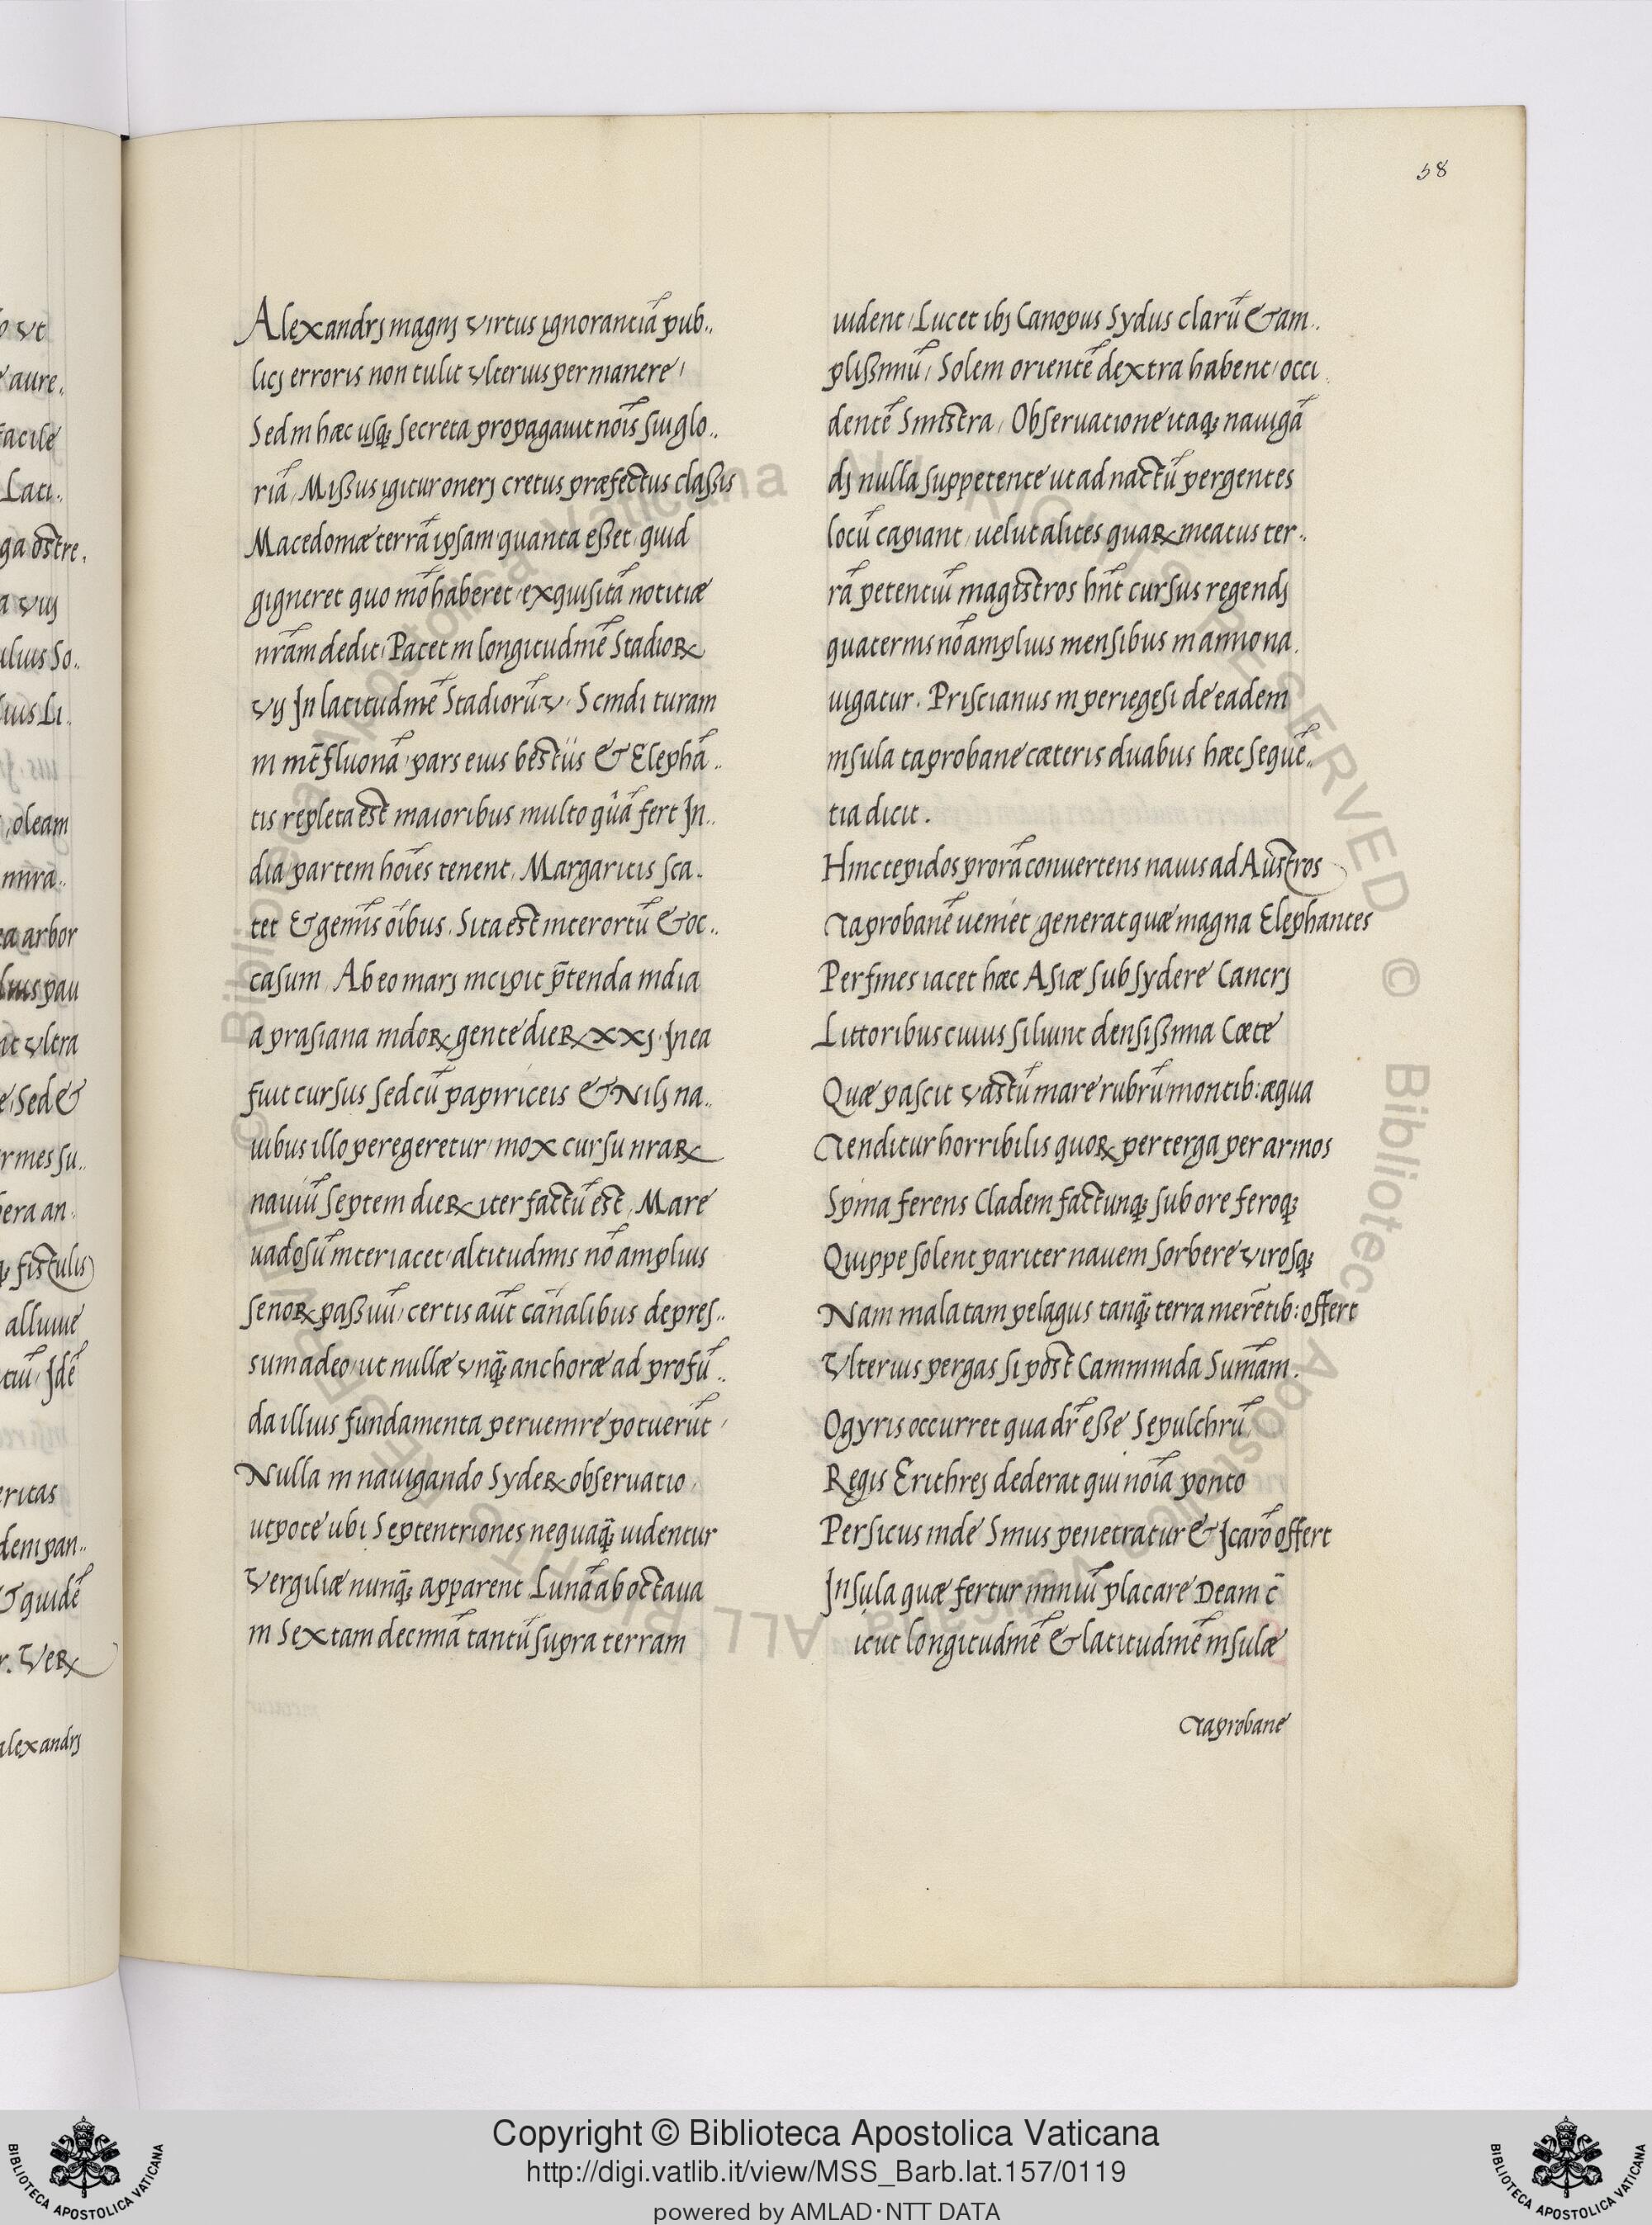 58
Alexandrj magnj virtus ignorantiā pub..
licj erroris non tulit vlterius permanere /
Sed in hæc usq; secreta propagauit nōis sui glo..
riā, Missus igitur onerj cretus præfectus classis
Macedoniæ terrā ipsam quanta esset, quid
gigneret quo mō haberet, exquisitā notitiæ
nrām dedit, Patet in longitudinē Stadioꝝ
vij In latitudinē Stadiorū v. Scindituram
in mēt fluonā, pars eius bestiis & Elephā..
tis repleta est maioribus multo quā fert In..
dia partem hoīes tenent, Margaritis sca..
tet & gemīs oībus. Sita est inter ortū & oc..
casum, Ab eo marj incipit p̄tenda india
a prasiana indoꝝ gente dieꝝ xxj. In ea
fuit cursus sed cū papiriceis & Nilj na..
uibus illo peregeretur, mox cursu nraꝝ
nauiū septem dieꝝ iter factū est, Mare
uadosū interiacet, altitudinis nō amplius
senoꝝ passuū, certis aūt canalibus depres..
sum adeo, ut nullæ vnq̄; anchoræ ad profū..
da illius fundamenta peruenire potuerūt /
Nulla in nauigando Sydeꝝ obseruatio,
utpote ubi Septentriones nequaq̄; uidentur
Vergiliæ nunq̄; apparent Lunā ab octaua
in Sextam decimā tantū supra terram
uident, Lucet ibj Canopus Sydus clarū & am..
plissimū, Solem orientē dextra habent, occi
dentē Sinistra, Obseruatione itaq; nauigā
dj nulla suppetente ut ad nactū pergentes
locū capiant, uelut alites quaꝝ meatus ter..
rā petentiū magistros hn̄t cursus regendj
quaternis nō amplius mensibus in anno na.
uigatur. Priscianus in periegesi de eadem
insula taprobane cæteris duabus hæc sequē..
tia dicit.
Hinc tepidos prorā conuertens nauis ad Austros
Taprobanē ueniet, generat quæ magna Elephantes
Perfines iacet hæc Asiæ sub sydere Cancrj
Littoribus cuius siliunt densissima Cœte
Quæ pascit vastū mare rubrū montib: æqua
Tenditur horribilis quoꝝ per terga per armos
Spina ferens Cladem factunq; sub ore feroq;
Quippe solent pariter nauem sorbere virosq;
Nam mala tam pelagus tanq̄; terra merētib: offert
Vlterius pergas si post Camminda Sumām.
Ogyris occurret qua dr̄ esse Sepulchrū
Regis Erithrej dederat qui noīa ponto
Persicus inde Sinus penetratur & Icarō offert
Insula quæ fertur nimiū placare Deam c̄
icut longitudinē & latitudinē insulæ
Taprobane
Copyright © Biblioteca Apostolica Vaticana
http://digi.vatlib.it/view/MSS_Barb.lat.157/0119
powered by AMLAD·NTT DATA